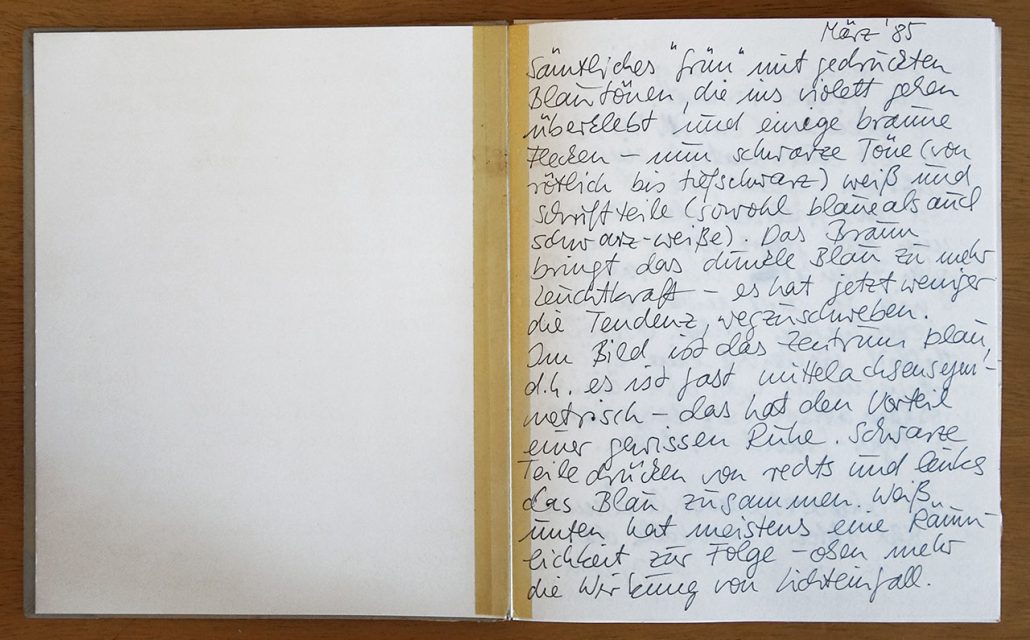 März '85
Sämtliches "grün" mit gedruckten
Blautönen, die ins violett gehen
überklebt und einige braune
Flecken – nun schwarze Töne (von
rötlich bis tiefschwarz) weiß und
Schriftteile (sowohl blaue als auch
schwarz-weiße). Das Braun
bringt das dunkle Blau zu mehr
Leuchtkraft – es hat jetzt weniger
die Tendenz, wegzuschweben.
Im Bild ist das Zentrum blau,
d.h. es ist fast mittelachsensym-
metrisch – das hat den Vorteil
einer gewissen Ruhe. Schwarze
Teile drücken von rechts und links
das Blau zusammen. Weiß
unten hat meistens eine Räum-
lichkeit zur Folge – oben mehr
die Wirkung von Lichteinfall.